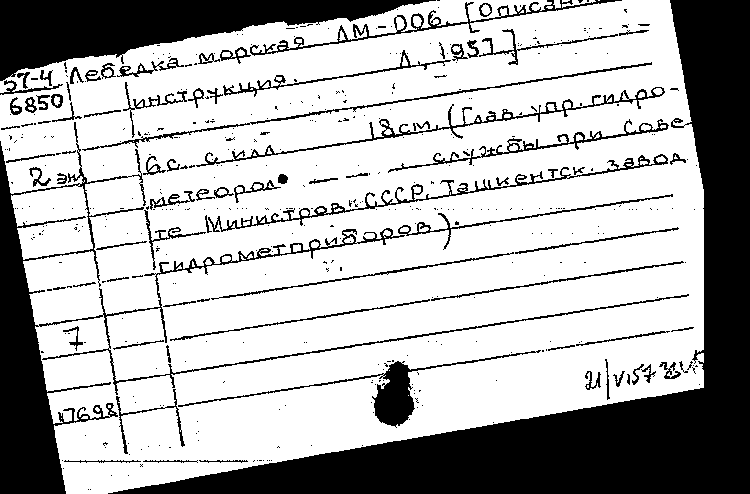 57-4
6850
Лебедка морская ЛМ-006. [Описание
инструкция. Л., 1957]
2 эк.
6 с. с илл. 18 см. (Глав. упр. гидро-
метеорол. — — . службы при Сове
те Министров СССР. Ташкентск. завод
гидрометприборов).
7
17698
21/V157